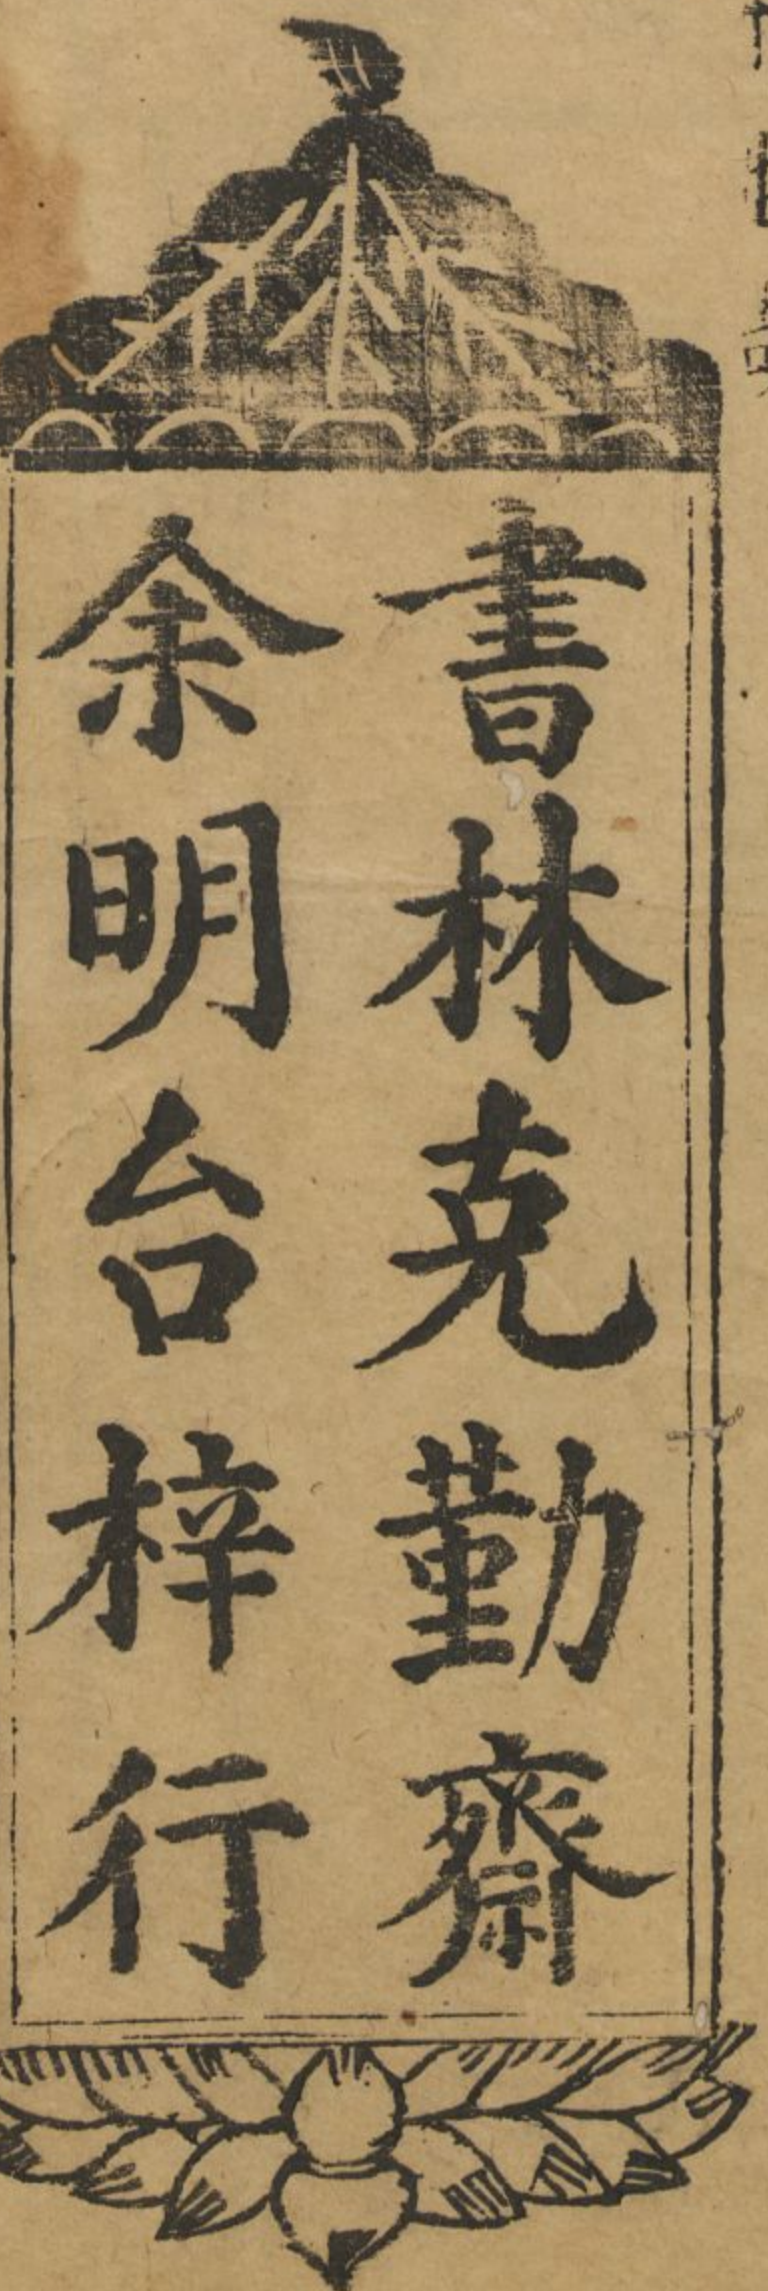 書林克勤齋
余明台梓行